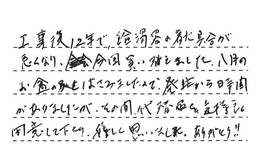 工事後12年で、給湯器の具合が
悪くなり、今回買い替えました。八月の
お盆の をはさみましたので 発注から日時間
がかかりましたが、その間代替品を気持よく
用意して下さり、嬉しく思いました。ありがとう!!